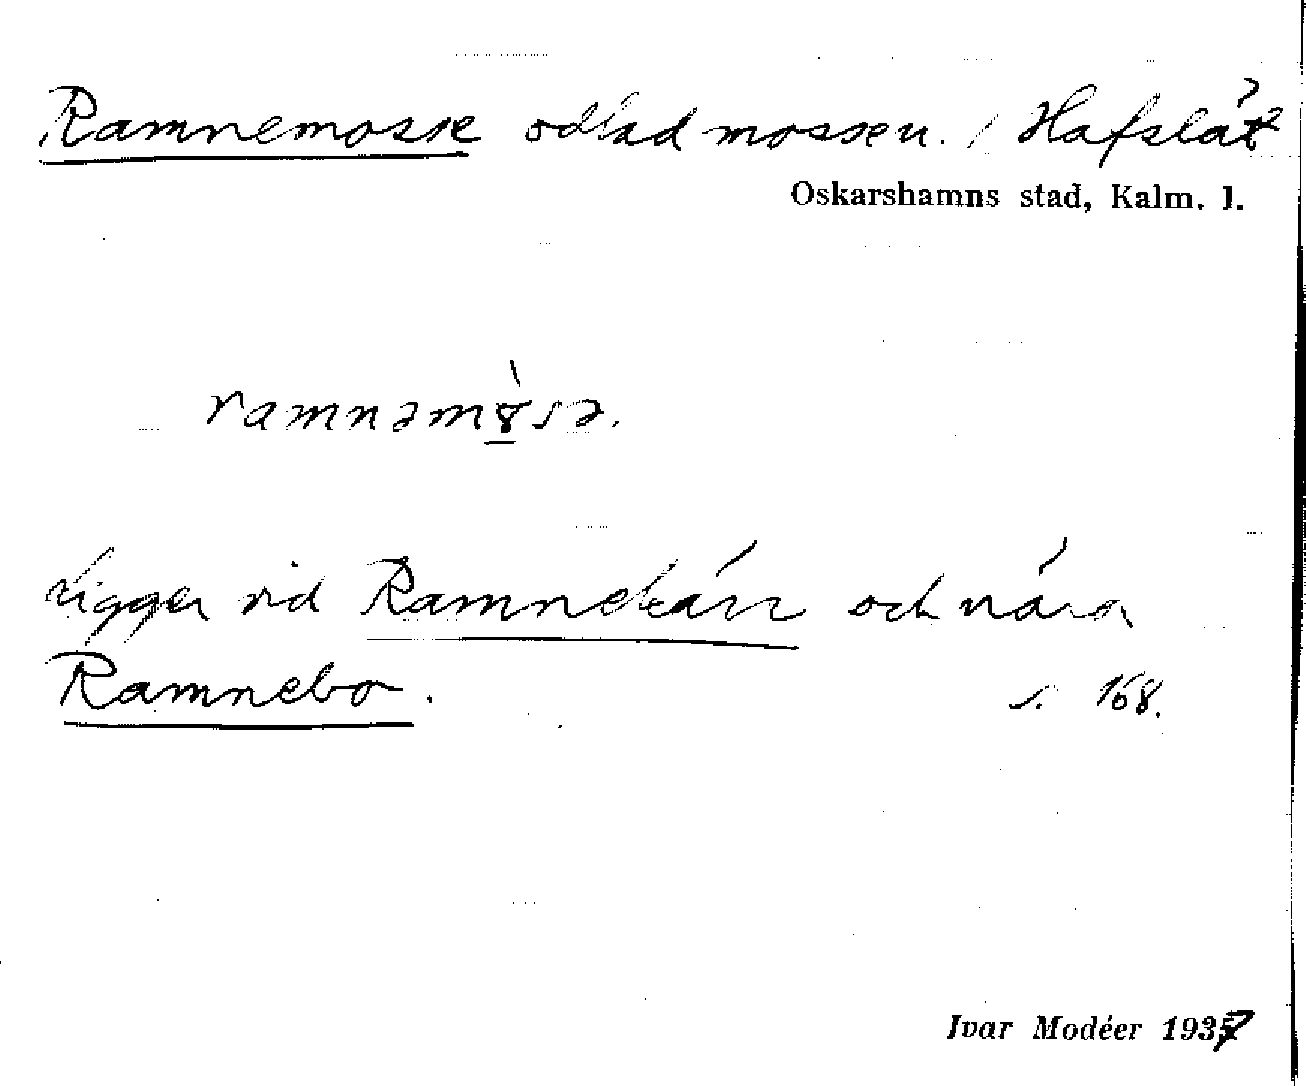 Ramnemosse odlad mossen. / Hafslätt
Oskarshamns stad, Kalm. l.
ramnəmɤ̀sə.
Ligger vid Ramnekärr och nära
Ramnebo.
s. 168.
Ivar Modéer 1937